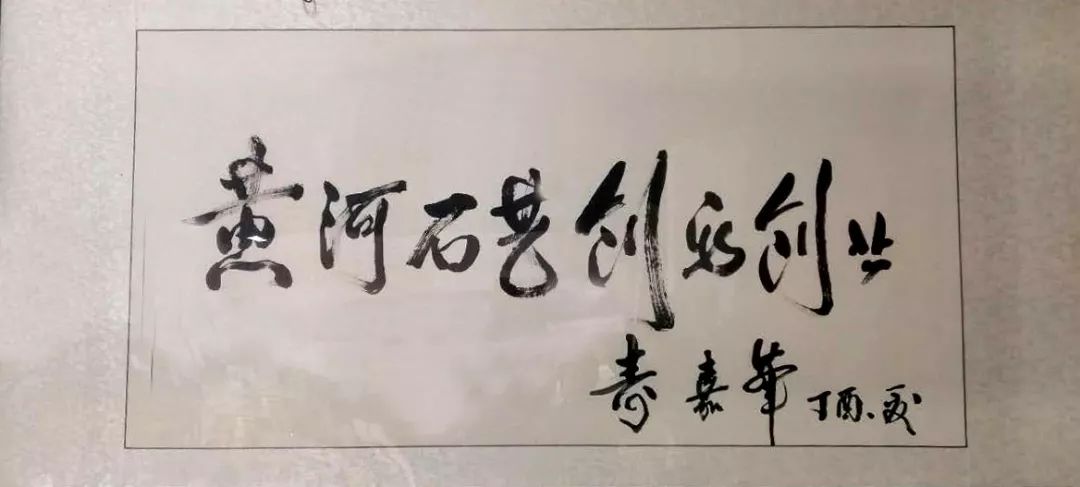 黄河石艺创新创业
寿嘉华 丁酉.夏